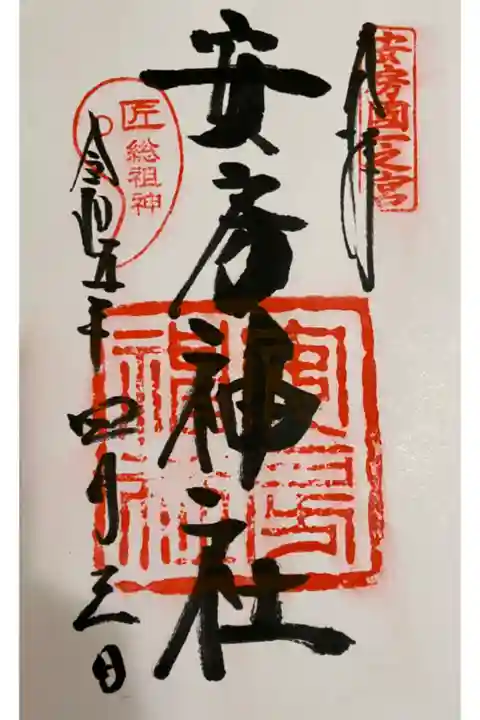 安房國一之宮
奉拝
安房神社
匠
総祖神
令和五年四月三日
安房神社